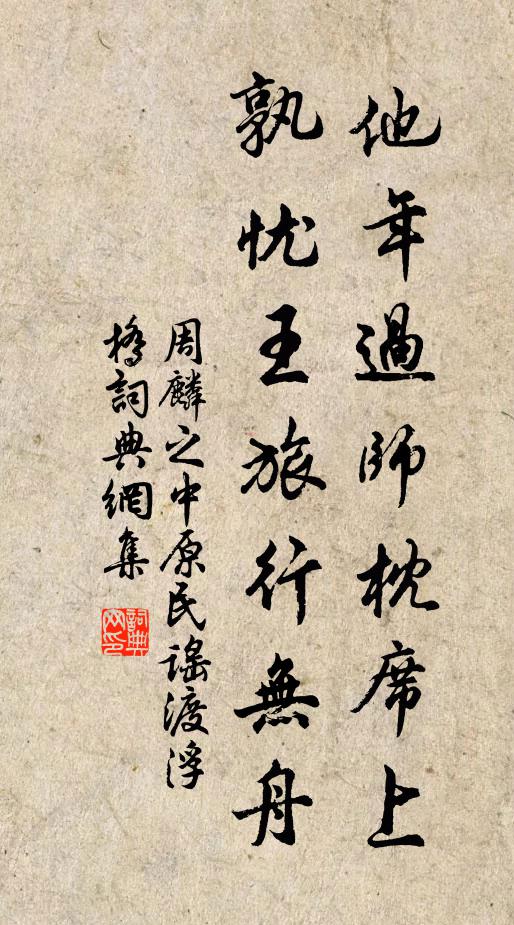 他年過師枕席上
孰忧王旅行無舟
周麟之中原民謠渡浮
橋詞典網集
詞典
网印